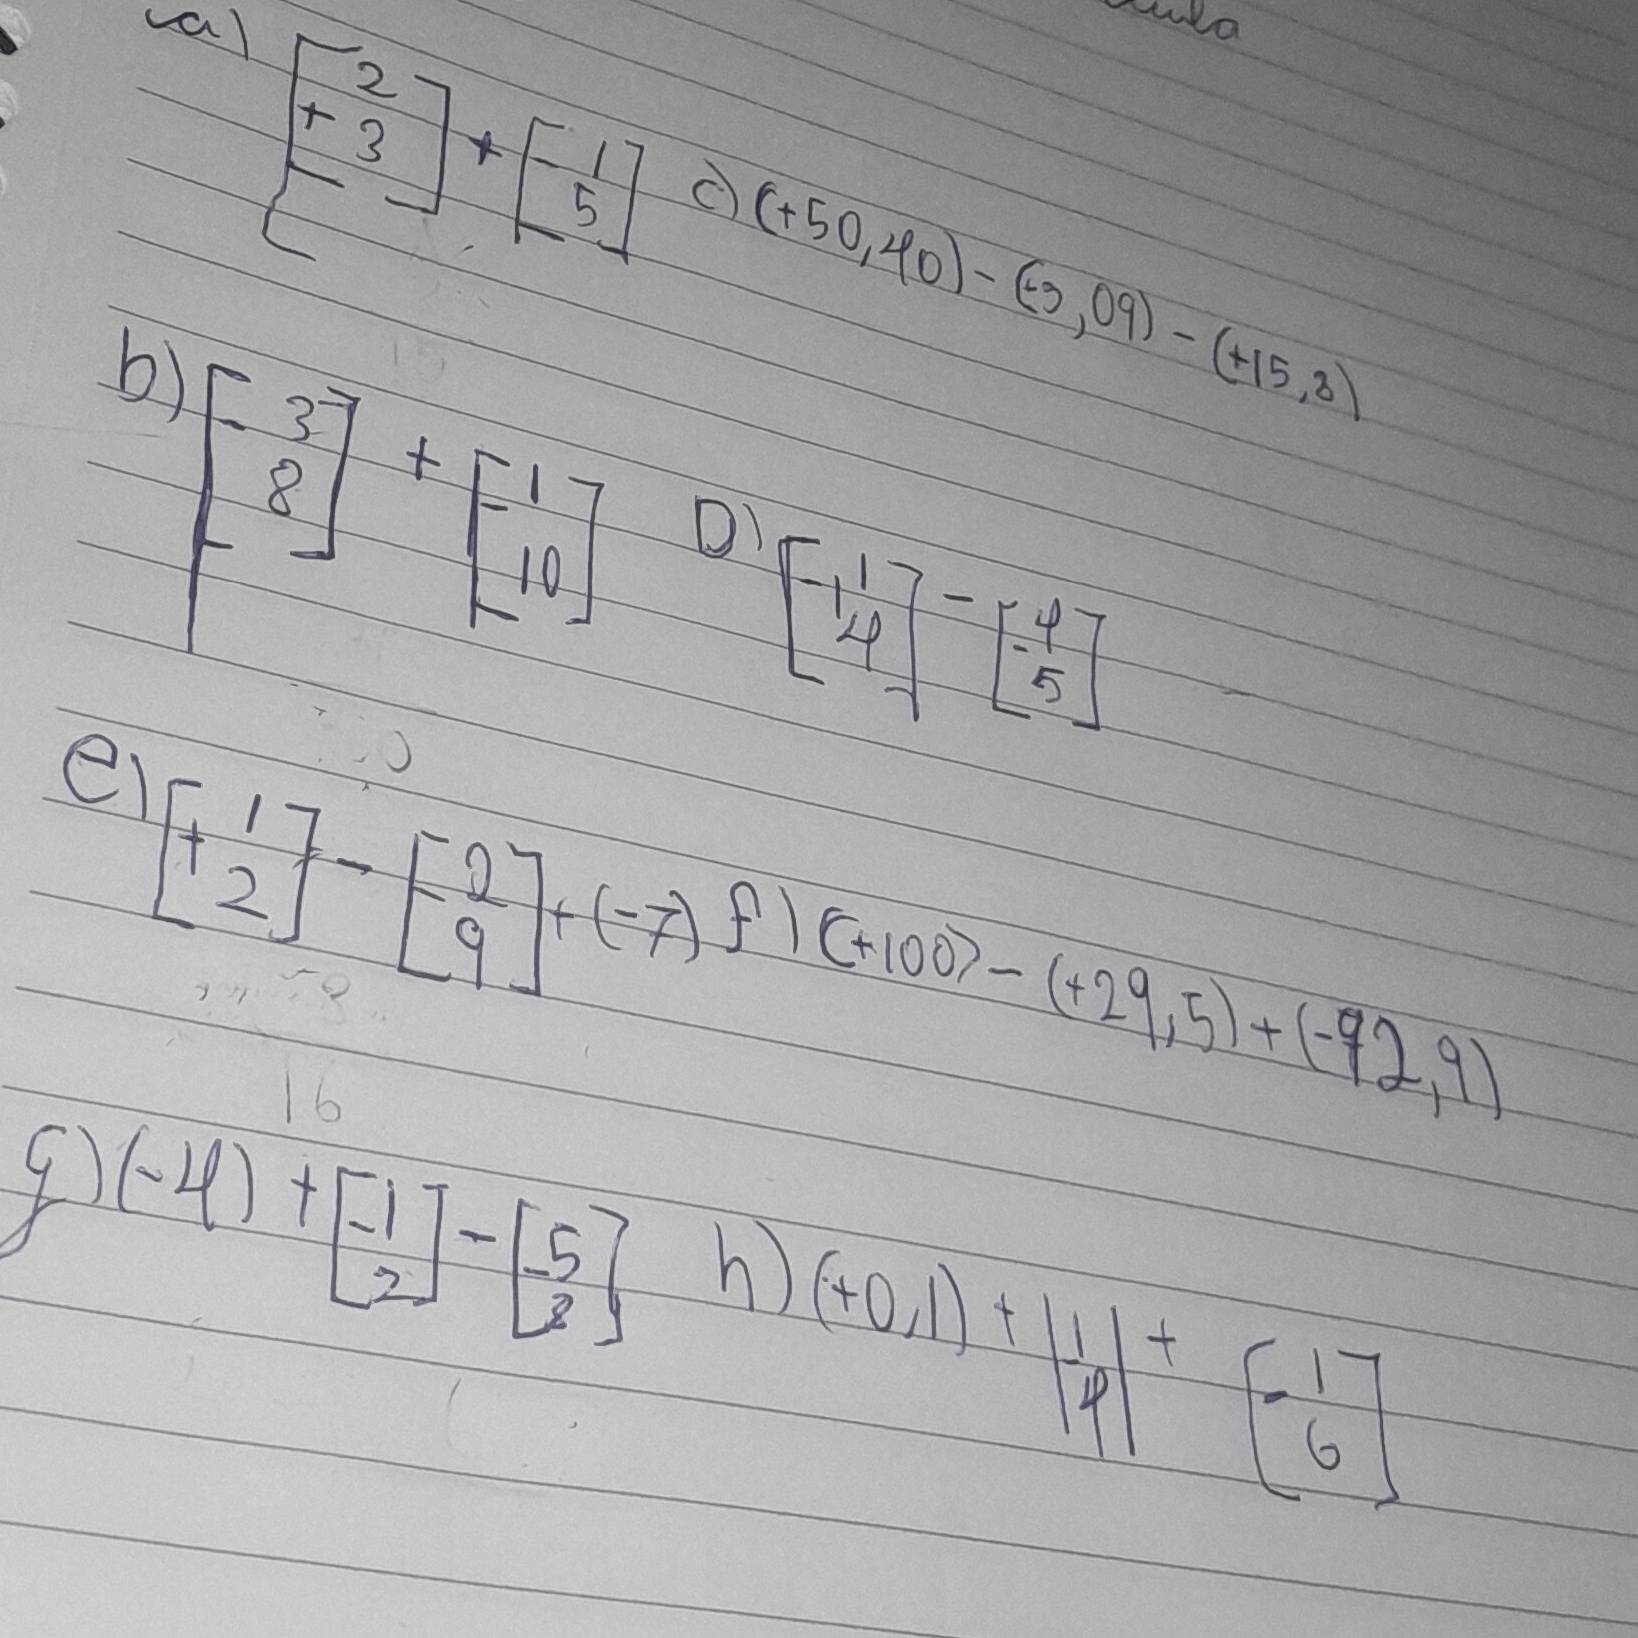 a) [+ 2/3] + [- 1/5] c) (+50,40) - (+3,09) - (+15,8)
b) [- 3/8] + [- 1/10] D) [- 1 1/4] - [- 4/5]
e) [+ 1/2] - [- 2/9] + (-7) f) (+100) - (+29,5) + (-92,9)
g) (-4) + [- 1/2] - [- 5/8] h) (+0,1) + | 1/4 | + [- 1/6]